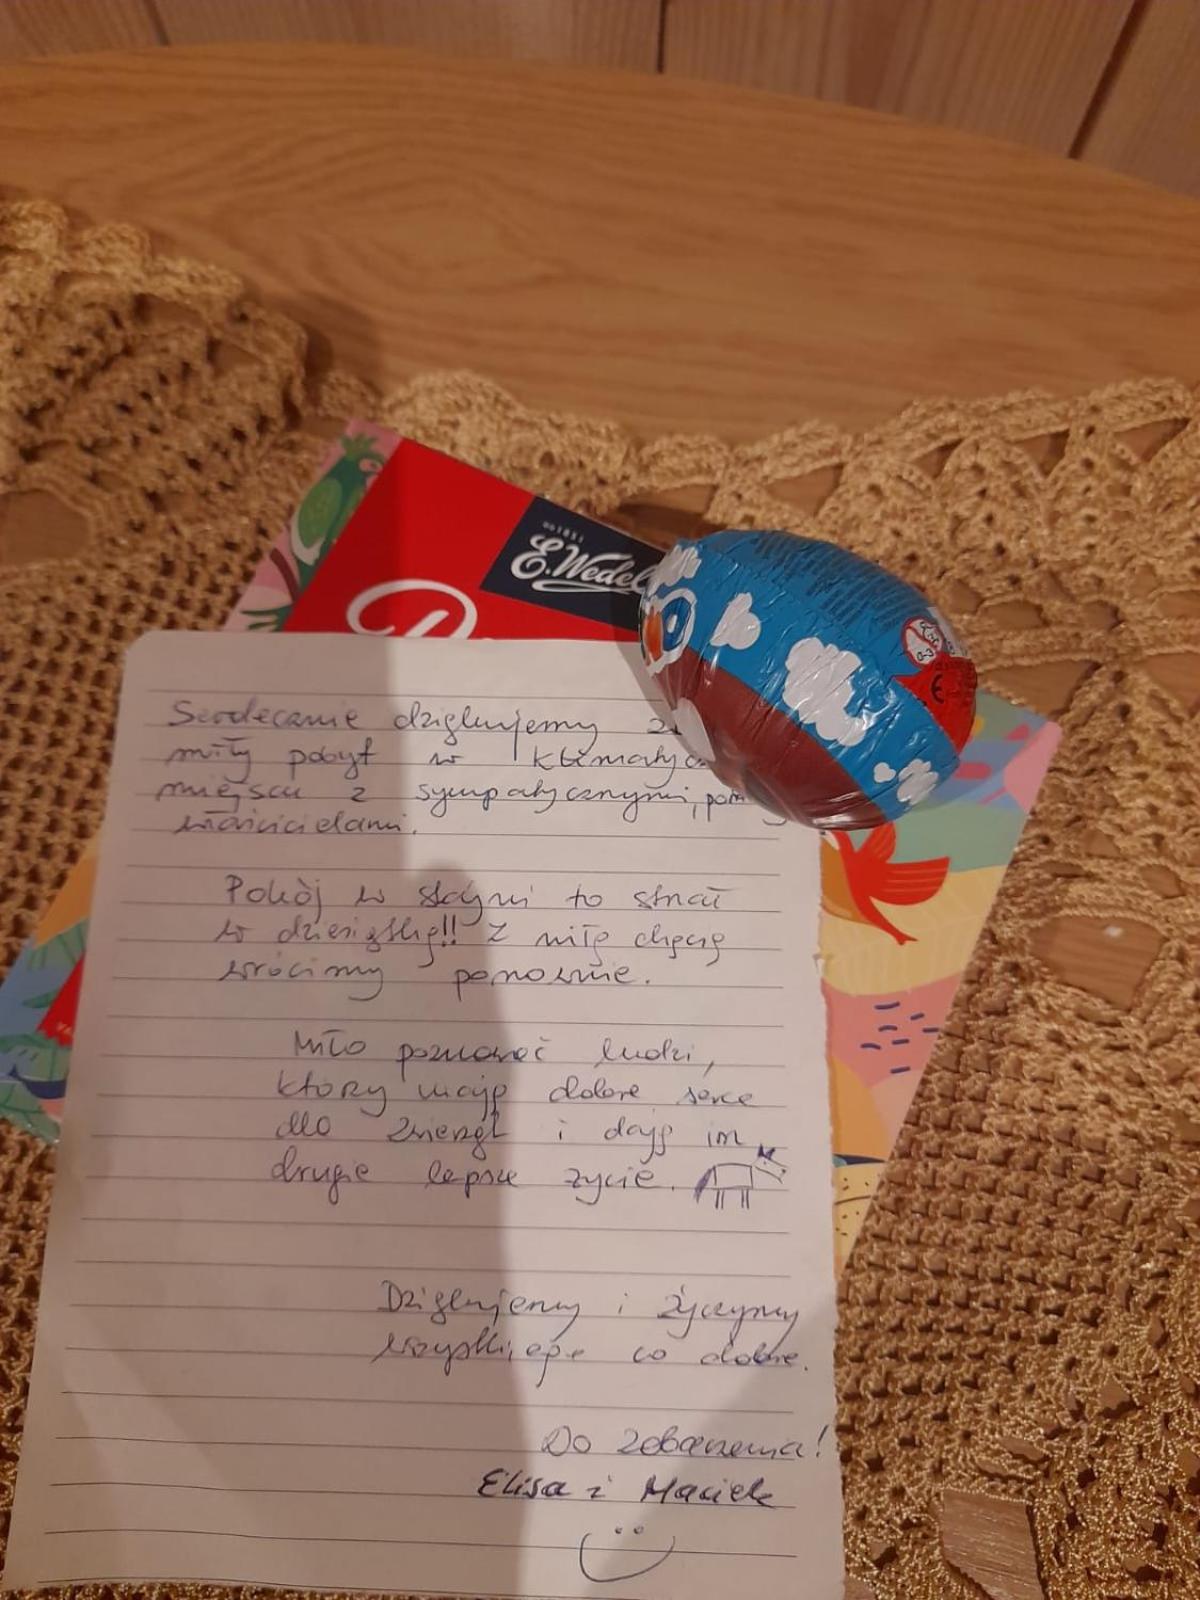 E. Wedel
Serdecznie dziękujemy za
miły pobyt w klimatycz
miejscu z sympatycznymi, pom
właścicielami.
Pokój w stajni to strzał
w dziesiątkę!! Z miłą chęcią
wrócimy ponownie.
Miło poznawać ludzi,
którzy mają dobre serce
dla zwierząt i dają im
drugie lepsze życie.
Dziękujemy i życzymy
wszystkiego co dobre.
Do zobaczenia!
Elisa i Maciek